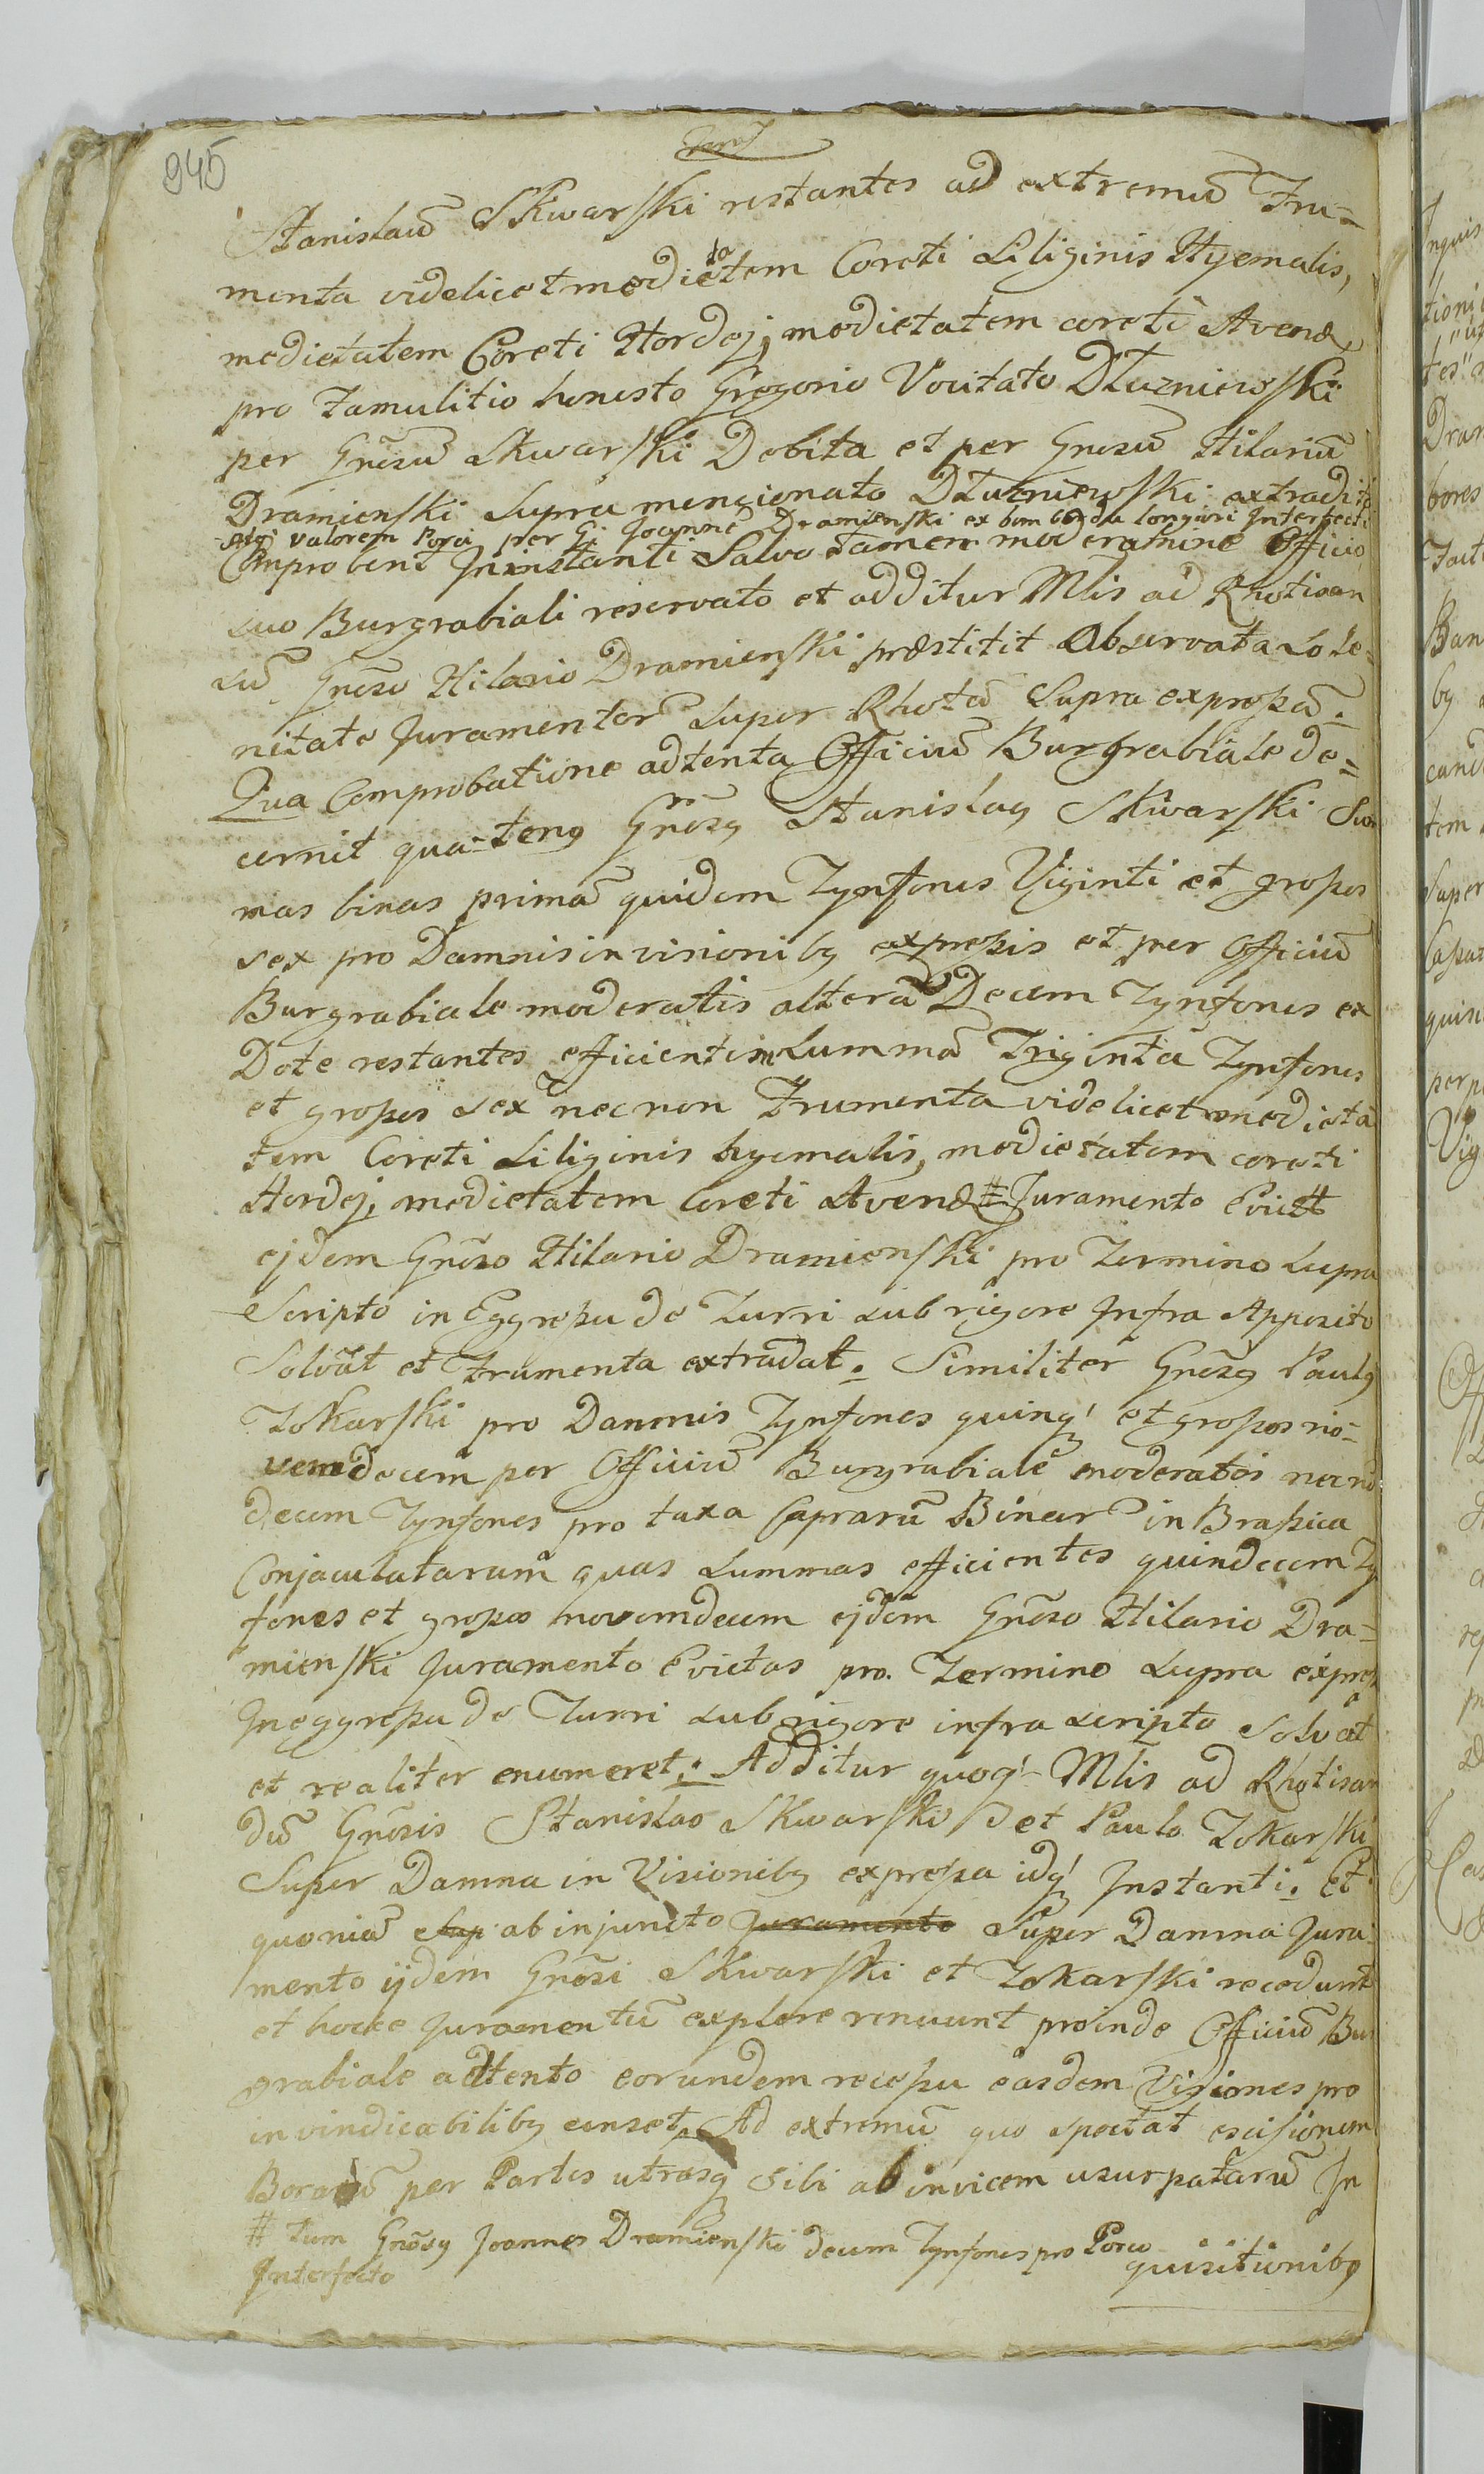 945
Stanislaũ Skwarski restantes ad extremũ Fru=
menta videlicet medietatem Coreti Siliginis Hyemalis,
medietatem Coreti Hordej, medietatem coreti Avenæ
pro Famulitio honesto Gregorio Vocitato Dłuzniewski
per Gñosũ Skwarski Debita et per Gnosũ Hilariũ
Dramienski Supra mencionato Dłuzniewski extradita
atq valorem Porci per G: Joannẽ Dramienski ex bombarda longiori Interfecti
Comprobent In instanti Salvo tamen moderamine Officio
suo Burgrabiali reservato et additur Mlis ad Rhotisan
dũ Gnoso Hilario Dramienski præstitit Observata Sole=
nitate Juramentor Super Rhotã Supra expressã.
Qua Comprobatione adtenta Officiũ Burgrabiale de=
cernit qua-teng Gñosg Stanislag Skwarski Sum
mas binas primã quidem Tynfones Viginti et grossos
sex pro Damnis in visionibg expressis et per Officiũ
Burgrabiale moderatis alterã Decem Tynfones ex
Dote restantes efficientes in Summã Triginta Tynfones
et grossos sex nec non Frumenta videlicet medieta
tem Coreti Siliginis hyemalis, medietatem coreti
Hordej, medietatem Coreti Avenæ # Juramento Evict
ejdem Gñoso Hilario Dramienski pro Termino Supra
Scripto in Eggressu de Turri sub rigore Infra Apposito
Solvat et Frumenta extradat. Similiter Gñosg Paulg
Tokarski pro Damnis Tynfones quinq' et grossos no=
vemdecem per Officiũ Burgrabiale moderatos nec nõ
decem Tynfones pro taxa Caprarũ Binar in Brassica
Conjaculatarum quas Summas efficientes quindecem Ty
fones et grossos novemdecem ejdem Gñoso Hilario Dra=
mienski Juramento Evictas pro Termino Supra expres
In eggressu de Turri sub rigore infra scripto Solvat
et realiter enumeret. Additur quoq' Mlis ad Rhotisan
dũ Gñosis Stanislao Skwarski et Paulo Tokarski
Super Damna in Visionibg expressa idq' Instanti. Et
quoniã ab injuncto Juramento Super Damna Jura
mento ijdem Gñosi Skwarski et Tokarski recedunt
et hocce Juramentũ explere renuunt proinde Officiũ Bur
grabiale adtento eorundem recessu easdem Visiones pro
invindicabilibg censet. Ad extremũ quo spectat escisionem
Borarũ per Partes utrasq sibi ab invicem usurpatarũ In
# tum Gñosg Joannes Dramienski decem Tynfones pro Porco
Interfecto
quisitionibg